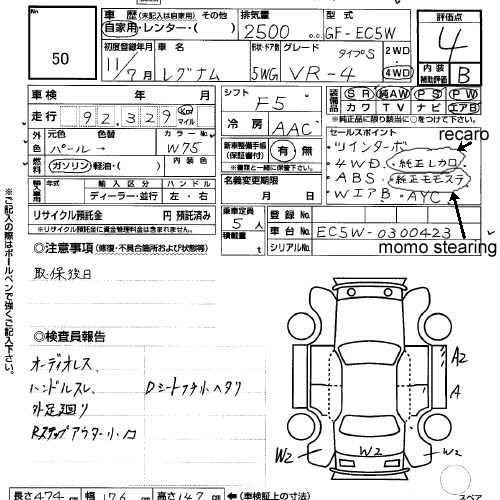 No
50
車歴 (未記入は自家用) その他
自家用・レンター・( )
排気量
2500 c.c.
型式
GF-EC5W
評価点
4
内装
補助評価
B
初度登録年月
11/7月
車名
レグナム
形状・ドア数
5WG
グレード
タイプS
VR-4
2WD
4WD
車検 年 月
走行 92,329 km マイル
外色
元色
パール→
色替
カラーNo.
W75
内装色
燃料
ガソリン・軽油・( )
シフト
F5
冷房
AAC
装備品
SR 純AW PS PW
カワ TV ナビ エアB
※純正品に限り該当に○をつけて下さい。
新車整備手帳
(保証書付)
有 無
※書類と一緒に保管して下さい。
セールスポイント
ツインターボ
4WD・純正レカロ
ABS・純正モモステ
WエアB・AYC
recaro
momo stearing
輸入車用
年式 輸入区分 ハンドル
ディーラー・並行 左・右
名義変更期限
月 日
リサイクル預託金 円 預託済み
※リサイクル預託金に資金管理料金は含まれません。
乗車定員
5人
積載量
t
登録No.
車台No. EC5W-0300423
シリアルNo.
※ご記入の際はボールペンで強くご記入下さい。
◎注意事項 (修復・不具合箇所および状態等)
取・保後日
◎検査員報告
オーディオレス
ハンドルスレ
Dシート
外足廻り
RステップアウターЛ
A2
A
W2
W2
W2
スペア
長さ474 幅176 高さ147 ←(車検証上の寸法)